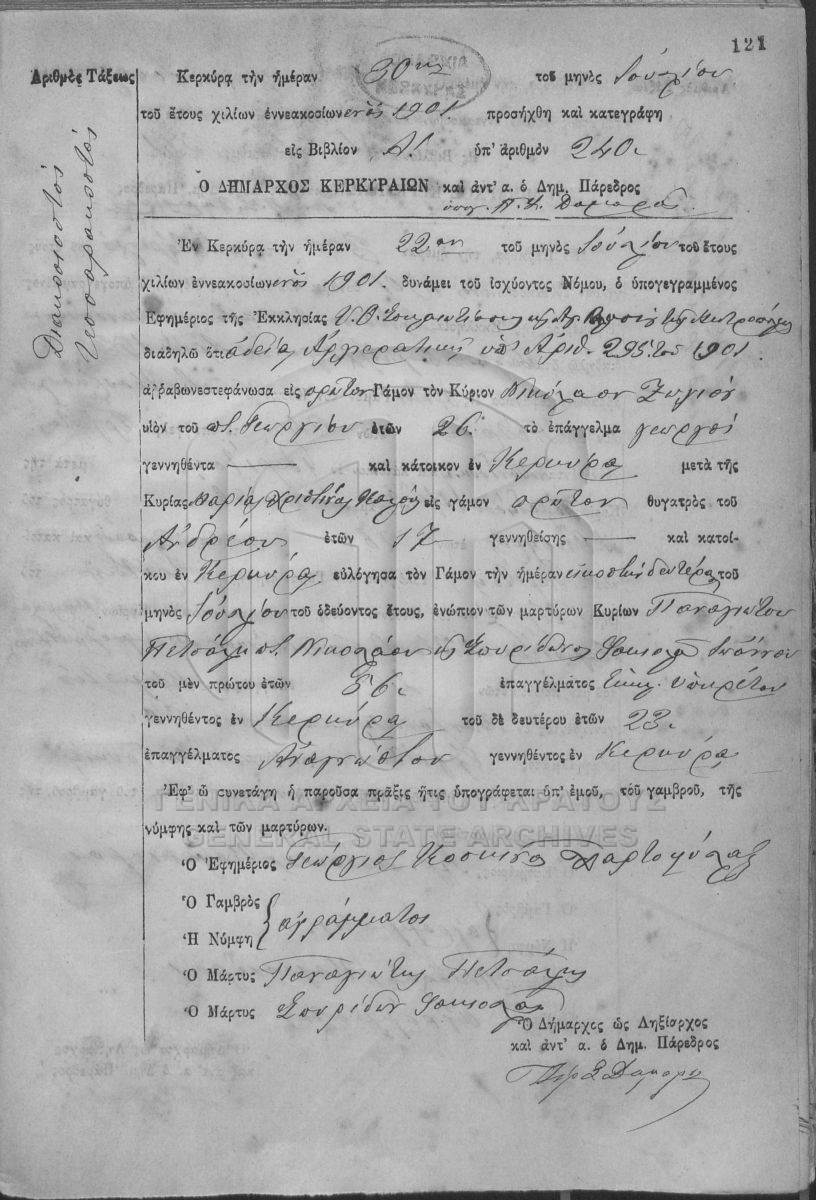 121
Ἀριθμὸς Τάξεως
Διακοσιοστὸς
τεσσαρακοστὸς
Κερκύρᾳ τὴν ἡμέραν 30ην τοῦ μηνὸς Ἰουλίου
τοῦ ἔτους χιλίων ἐννεακοσίων ἑνὸς 1901. προσήχθη καὶ κατεγράφη
εἰς Βιβλίον Α! ὑπ' ἀριθμὸν 240.
Ο ΔΗΜΑΡΧΟΣ ΚΕΡΚΥΡΑΙΩΝ καὶ ἀντ' α. ὁ Δημ. Πάρεδρος
ὑπογ.
Ἐν Κερκύρᾳ τὴν ἡμέραν 22αν τοῦ μηνὸς Ἰουλίου τοῦ ἔτους
χιλίων ἐννεακοσίων ἑνὸς 1901. δυνάμει τοῦ ἰσχύοντος Νόμου, ὁ ὑπογεγραμμένος
Ἐφημέριος τῆς Ἐκκλησίας Υ. Θ. Σπηλαιωτίσσης
διαδηλῶ ὅτι ἀδείᾳ Ἀρχιερατικῇ ὑπ' Ἀριθ. 295 τοῦ 1901.
ἀῤῥαβωνεστεφάνωσα εἰς πρῶτον Γάμον τὸν Κύριον Νικόλαον
υἱὸν τοῦ π. Γεωργίου ἐτῶν 26. τὸ ἐπάγγελμα γεωργὸς
γεννηθέντα — καὶ κάτοικον ἐν Κερκύρᾳ μετὰ τῆς
Κυρίας Μαρίας Χριστίνας εἰς γάμον πρῶτον θυγατρὸς τοῦ
Ἀνδρέου ἐτῶν 17 γεννηθείσης — καὶ κατοί-
κου ἐν Κερκύρᾳ εὐλόγησα τὸν Γάμον τὴν ἡμέραν εἰκοστὴν δευτέραν τοῦ
μηνὸς Ἰουλίου τοῦ ὁδεύοντος ἔτους, ἐνώπιον τῶν μαρτύρων Κυρίων Παναγιώτου
Πετσάλη π. Νικολάου καὶ Σπυρίδωνος Ἰωάννου
τοῦ μὲν πρώτου ἐτῶν 56. ἐπαγγέλματος Ἐκκλ. ὑπηρέτου
γεννηθέντος ἐν Κερκύρᾳ τοῦ δὲ δευτέρου ἐτῶν 23.
ἐπαγγέλματος Ἀναγνώστου γεννηθέντος ἐν Κερκύρᾳ
Ἐφ' ᾧ συνετάγη ἡ παροῦσα πρᾶξις ἥτις ὑπογράφεται ὑπ' ἐμοῦ, τοῦ γαμβροῦ, τῆς
νύμφης καὶ τῶν μαρτύρων.
ΓΕΝΙΚΑ ΑΡΧΕΙΑ ΤΟΥ ΚΡΑΤΟΥΣ
GENERAL STATE ARCHIVES
Ὁ Ἐφημέριος Γεώργιος Κοσκινᾶ Χαρτοφύλαξ
Ὁ Γαμβρὸς
Ἡ Νύμφη
ἀγράμματοι
Ὁ Μάρτυς Παναγιώτης Πετσάλης
Ὁ Μάρτυς Σπυρίδων
Ὁ Δήμαρχος ὡς Ληξίαρχος
καὶ ἀντ' α. ὁ Δημ. Πάρεδρος